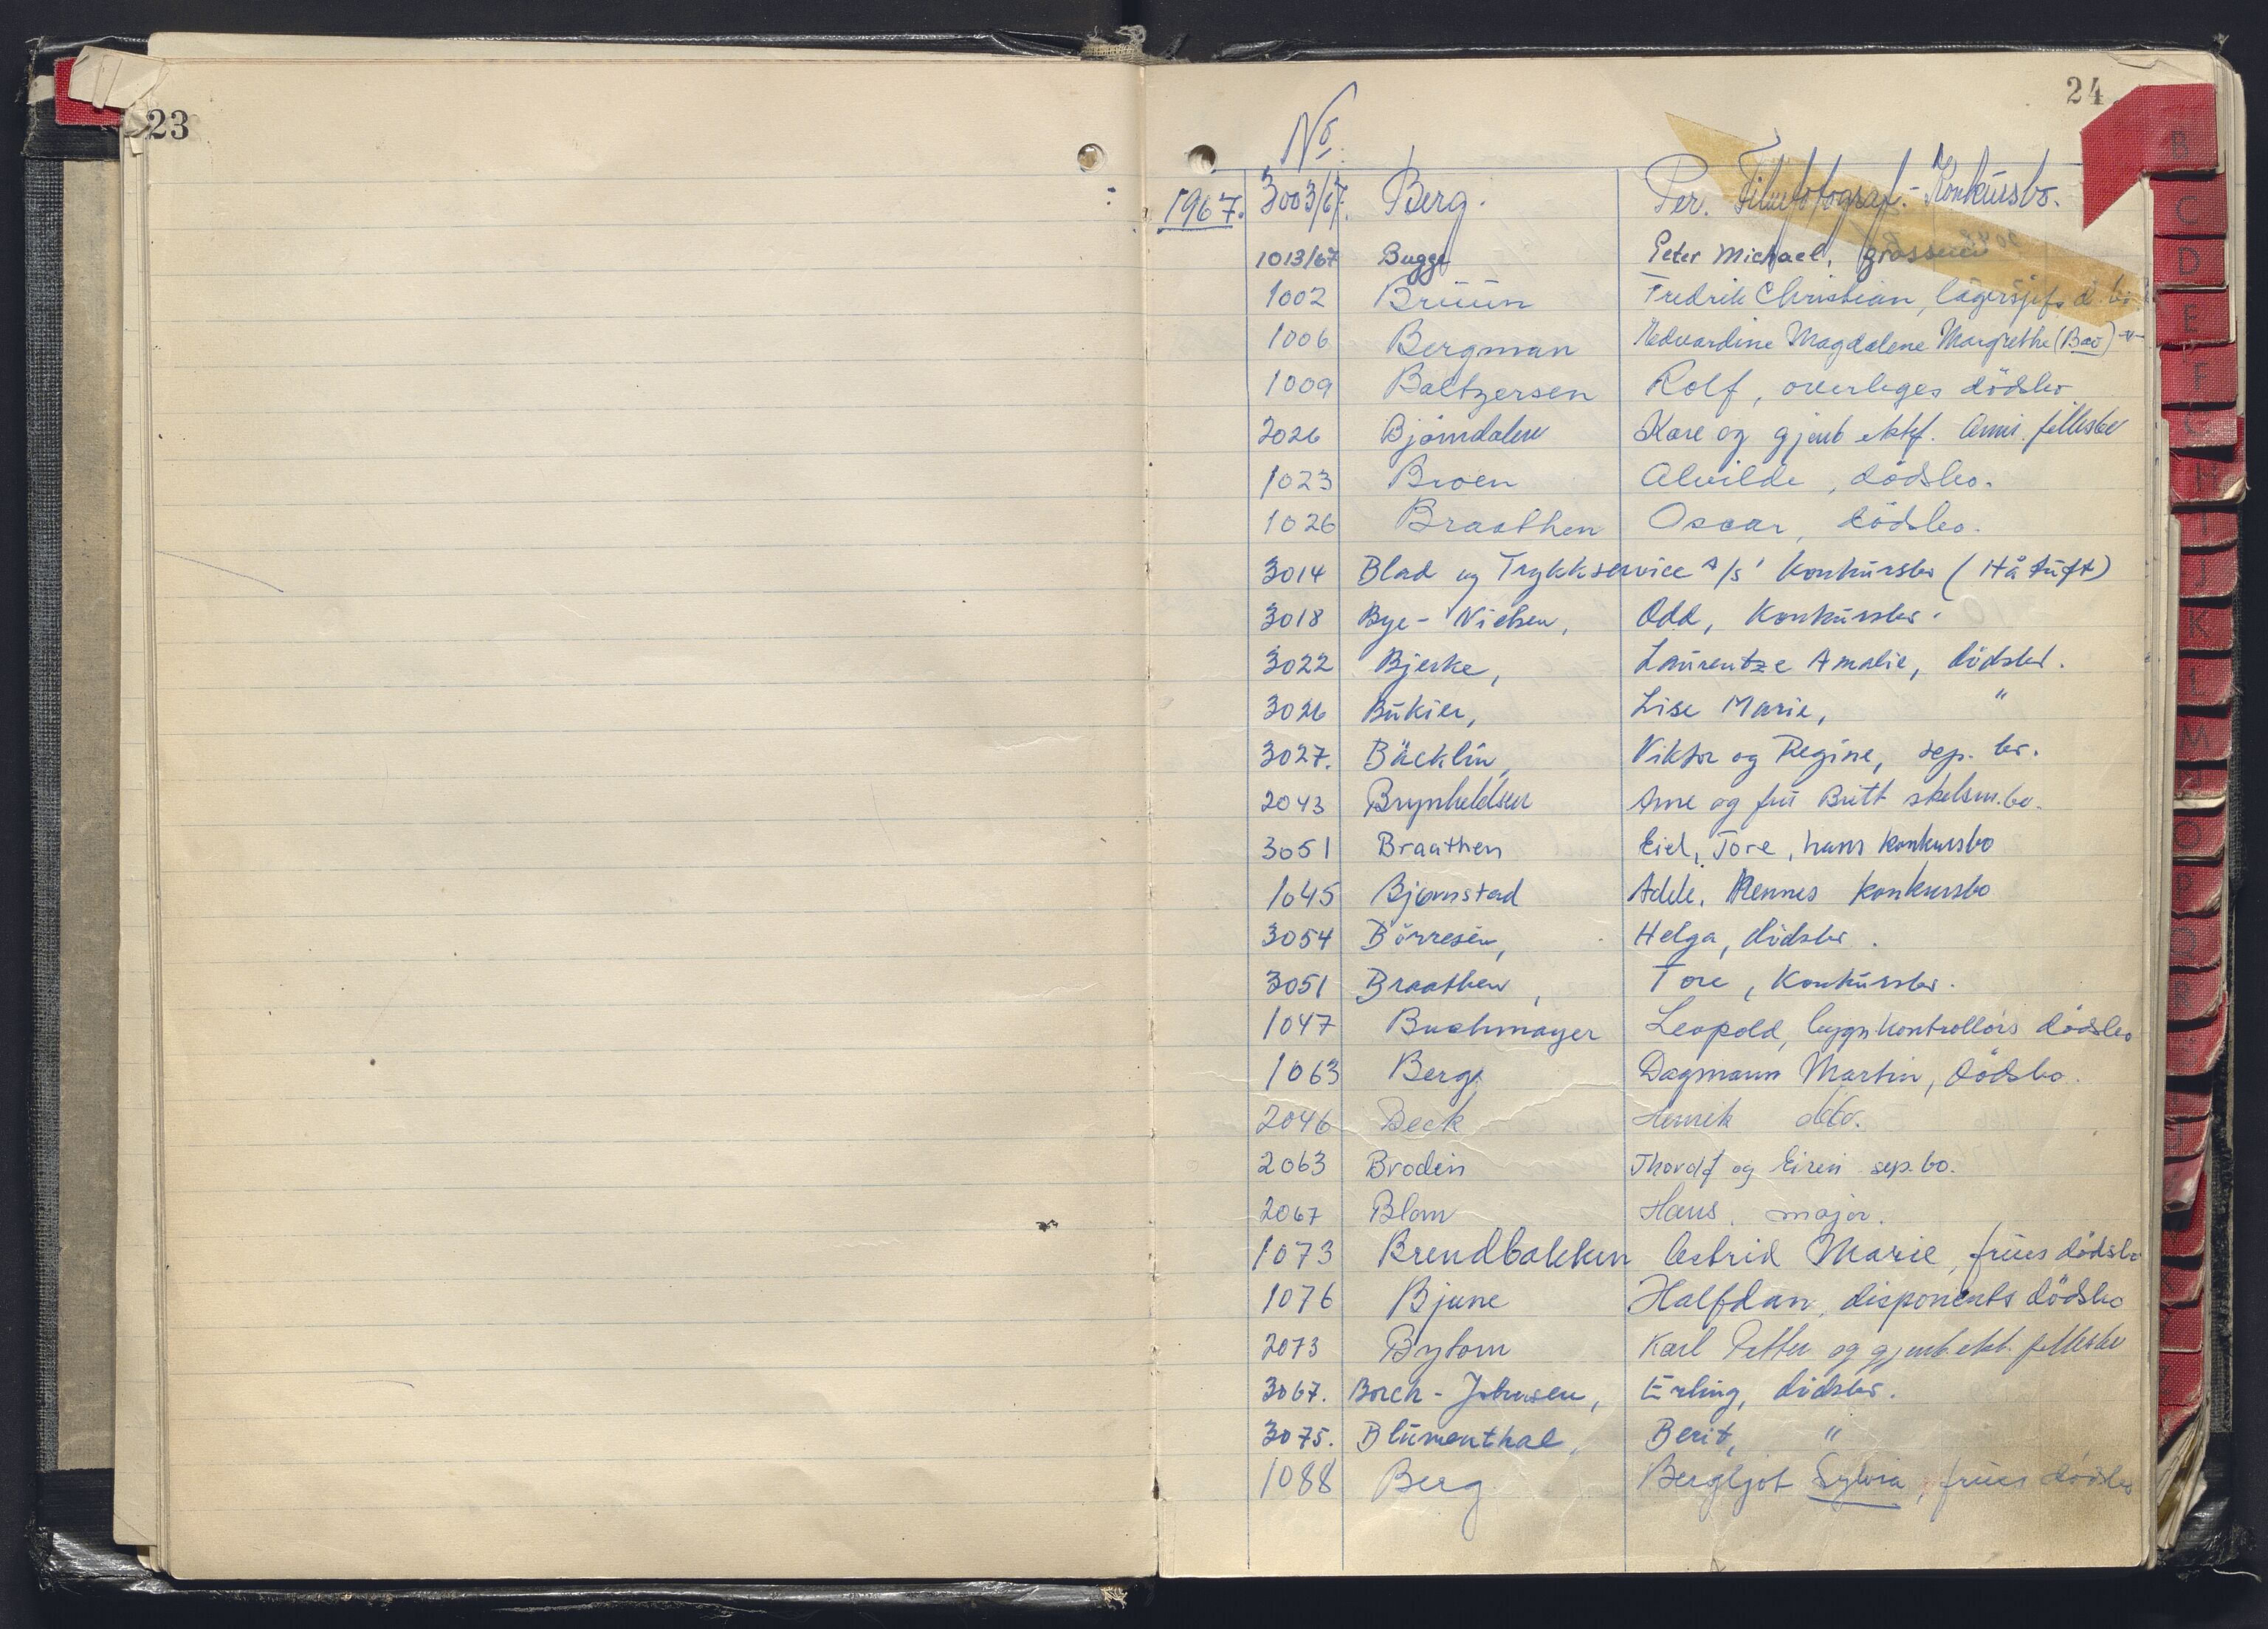 23
24
No.
1967. 3003/67. Berg. Per. Filmfotograf.- Konkursbo.
1013/67 Bugge Peter Michael, grosserer
1002 Bruun Fredrik Christian, lagersjefs d.bo
1006 Bergman Nedvardine Magdalene Margrethe (Bao) -"-
1009 Baltzersen Rolf, overleges dödsbo
2026 Bjørndalen Kåre og gjenl. ektf. Anni. fellesbo
1023 Broen Alvilde, dödsbo.
1026 Braathen Oscar, dödsbo.
3014 Blad og Trykkservice A/S' Konkursbo (Håtuft)
3018 Bye-Nielsen, Odd, Konkursbo.
3022 Bjerke, Laurentze Amalie, dödsbo.
3026 Bukier, Lise Marie, "
3027. Bäcklin, Viktor og Regine, sep. bo.
2043 Brynhildsen Arne og fru Britt skilsm.bo.
3051 Braathen Eid, Tore, hans konkursbo
1045 Bjørnstad Adele, Hennes konkursbo
3054 Börresen, Helga, dödsbo.
3051 Braathen, Tore, Konkursbo.
1047 Buchmayer Leopold, bygn.kontrollörs dödsbo
1063 Berg Dagmann Martin, dödsbo.
2046 Beck Henrik dbo.
2063 Brodin Thoralf og Eiren sep.bo.
2067 Blom Hans. major.
1073 Brendbakken Astrid Marie, frues dödsbo
1076 Bjune Halfdan, disponents dödsbo
2073 Bytom Karl Petter og gjenl. ekt. fellesbo
3067. Borch-Johnsen, Erling, dödsbo.
3075. Blumenthal, Berit, "
1088 Berg Bergljot Sylvia, frues dödsbo
B
C
D
E
F
G
H
I
J
K
L
M
O
P
Q
R